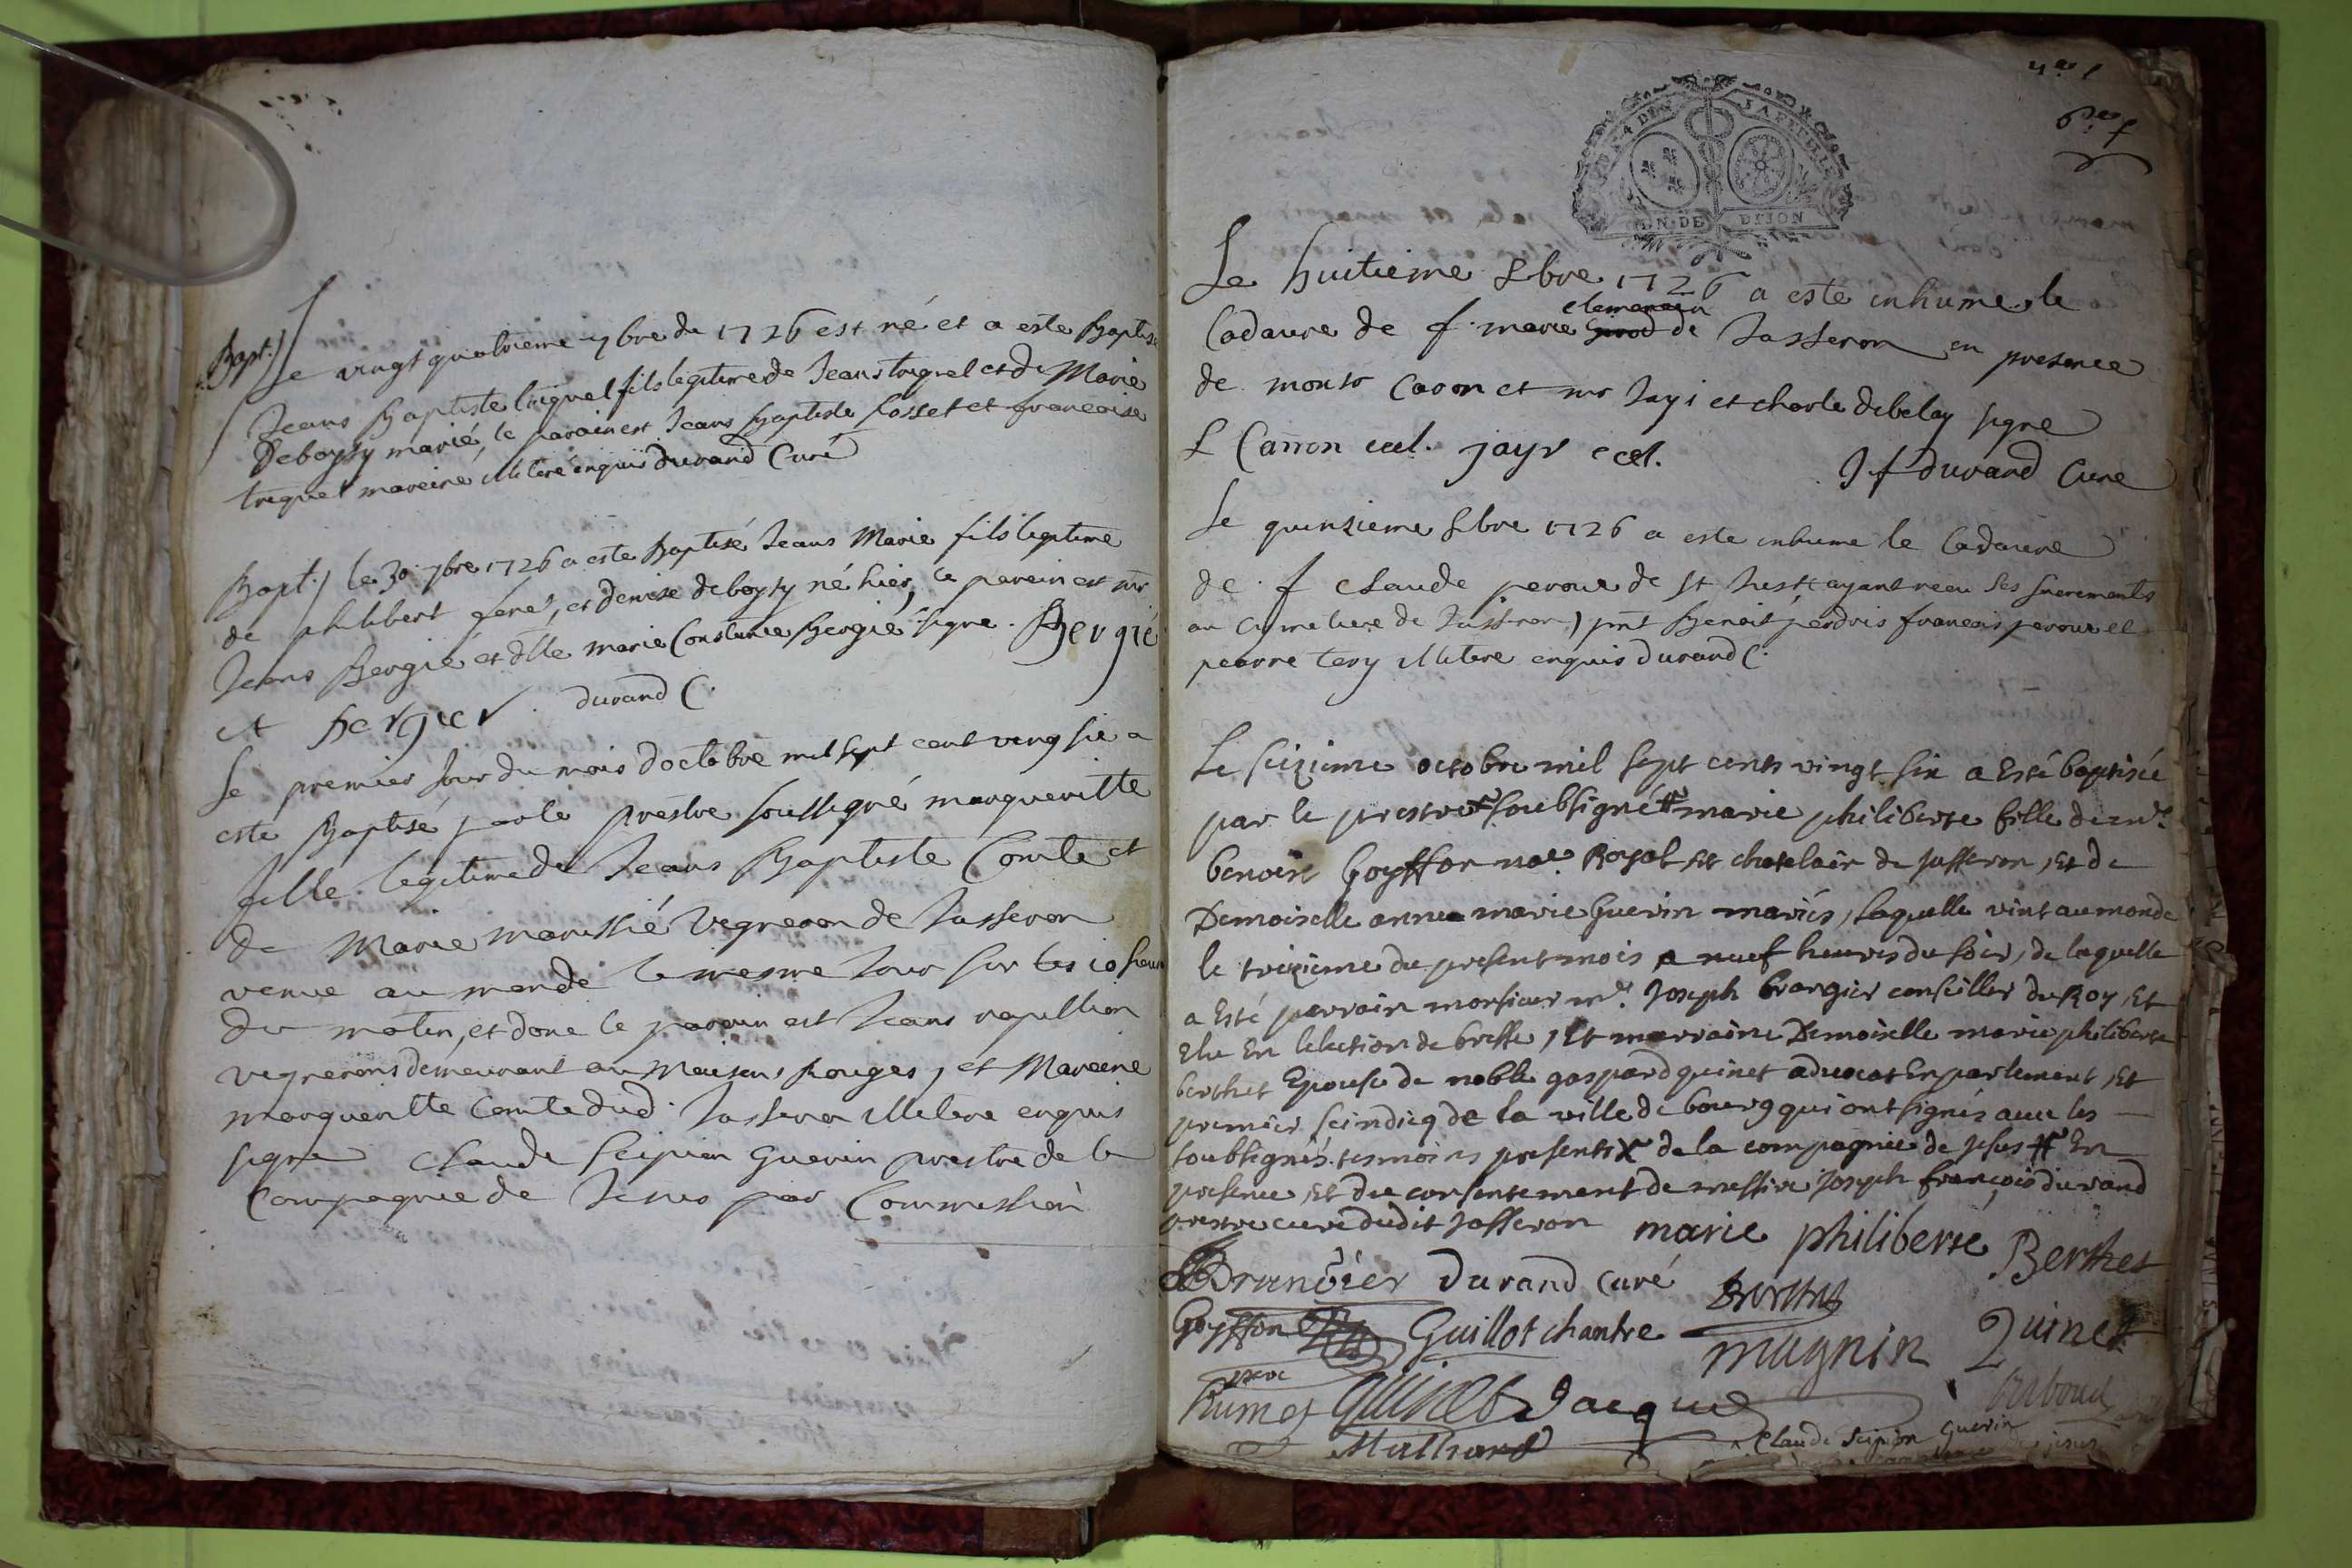 Bapt.)
Le vingt quatrieme 7bre de 1726 est né et a este Baptisé
Jeans Baptiste triquel fils legitime de Jeans triquel et de Marie
Deboysy mariés, le parain est Jeans Baptiste Cosset et francoise
triquel mareine illiteré enquis durand Curé
Bapt.) le 30 7bre 1726 a este Baptisé Jeans Marie fils legitime
de philibert et denise deboysy né hier, le parein est mr
Jeans Bergié et dlle marie Constance Bergié signe. Bergié
et Bergier. durand C.
Le premier Jour du mois doctobre mil sept cent vingt sie a
este Baptisé par le prestre soussigné margueritte
fille legitime de Jeans Baptiste Comte et
de Marie marissié vegneron de Jasseron
venue au monde le mesme Jour sur les 10 heures
du matin, et donc le parain est Jeans
vegnerons demeurant au Maisons Rouges, et Mareine
margueritte Comte dud. Jasseron illitere enquis
signe Claude Scipion Guerin prestre de la
Compagnie de Jesus par Commission
SIX 4 DEN LA FEUILLE
GEN DE DIJON
Le huitieme 8bre 1726 a este inhume le
clemencin
Cadavre de f. marie Girod de Jasseron en presence
de monsr Caron et mr Jayr et charle debelay signe
L Carron eccl. jayr eccl. J f durand Cure
Le quinzieme 8bre 1726 a este inhume le Cadavre
de f Claude perour de St Just (ayant receu ses sacrements
au cymetiere de Jasseron) pnt Benoit perdrix francois perour et
pearre tery illitere enquis durand C.
Le seizieme octobre mil sept cents vingt six a Esté baptisée
par le prestre soubsigné # marie philiberte fille de mr.
benoist Goyffon nore. Royal Et chatelain de Jasseron, Et de
Demoiselle anne marie Guerin mariés, laquelle vint au monde
le treizieme du present mois a neuf heures du soir, de laquelle
a Esté parrain monsieur mr. Joseph brangier conseiller du Roy, Et
Elu En lelection de bresse, Et marraine Demoiselle marie philiberte
berthet Epouse de noble gaspard quinet advocat En parlement, Et
premier scindicq de la ville de bourg qui ont signés avec les
soubsignés tesmoins presents X de la compagnie de Jesus # En
presence, Et du consentement de messire Joseph françois durand
prestre curé dudit Jasseron marie philiberte Berthet
durand Curé
Goyffon Guillot chantre magnin Quinet
Quinet Jacquet
Claude Scipion Guerin